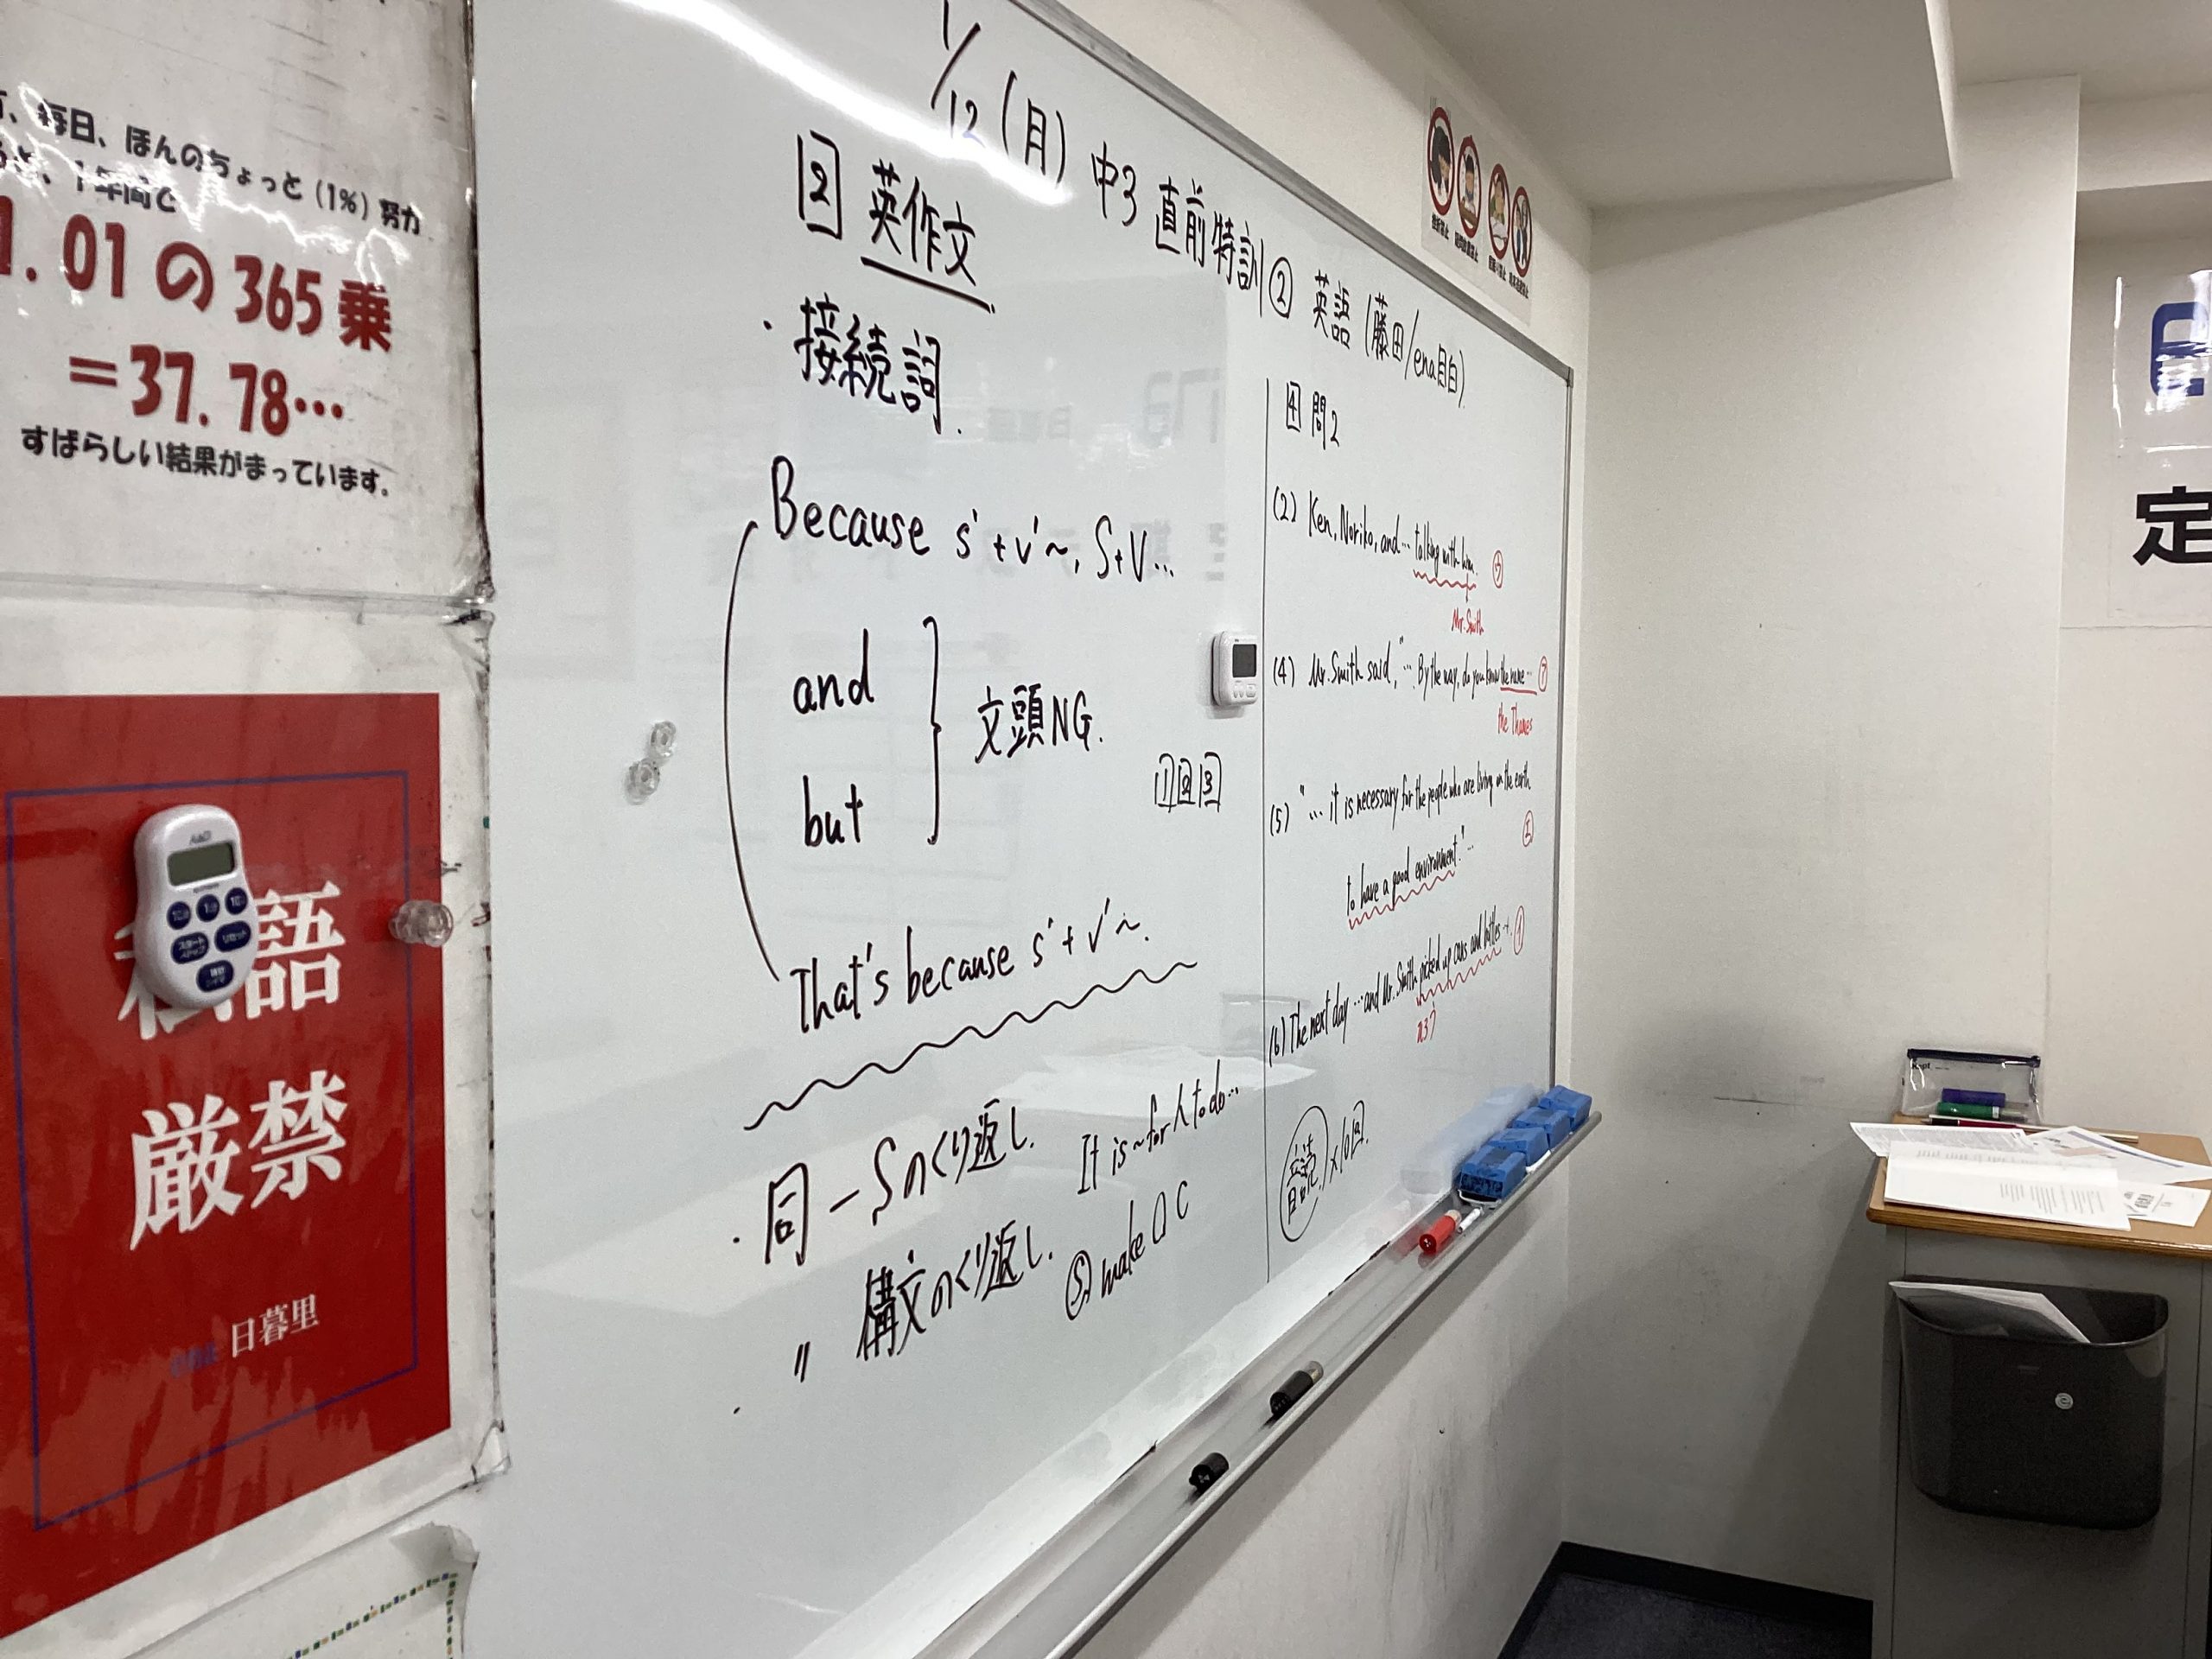 毎日、ほんのちょっと(1%)努力
1年間で
1.01の365乗
=37.78…
すばらしい結果がまっています。
A&D
スタート
リセット
語
厳禁
日暮里
1/12(月) 中3 直前特訓② 英語(藤田/ena目白)
2 英作文
・接続詞.
Because s'+v'~, S+V...
and
but
文頭NG.
That's because s'+v'~.
・同一Sのくり返し.
〃 構文のくり返し.
It is ~ for 人 to do...
Ⓢ make O C
1 2 3
4 問2
(2) Ken, Noriko, and… talking with him. ウ
Mr. Smith
(4) Mr. Smith said, "… By the way, do you know the name… ア
the Thames
(5) "… it is necessary for the people who are living on the earth
to have a good environment."… エ
(6) The next day …and Mr. Smith picked up cans and bottles… イ
拾う
音読 ×10回.
定